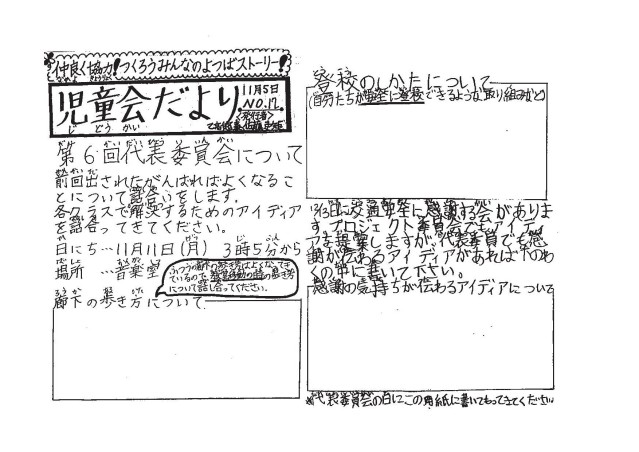 仲良く協力!つくろうみんなのよつばストーリー!
児童会だより
じどうかい
11月5日
NO.17
<発行者>
第6回代表委員会について
前回出されたがんばればよくなるこ
とについて話合いをします。
各クラスで解決するためのアイディア
を話合ってきてください。
日にち…11月11日(月) 3時5分から
場所 …音楽室
ふつうの廊下の歩き方はよくなってき
ているので、教室移動の時の歩き方
について話し合ってください。
廊下の歩き方について
登校のしかたについて
(自分たちが安全に登校できるような取り組みなど)
12/13日に交通安全に感謝する会がありま
す。プロジェクト委員会でもアイディ
アを提案しますが、代表委員でも感
謝が伝わるアイディアがあれば下のわ
くの中に書いて下さい。
感謝の気持ちが伝わるアイディアについて
※代表委員会の日にこの用紙に書いてもってきてください